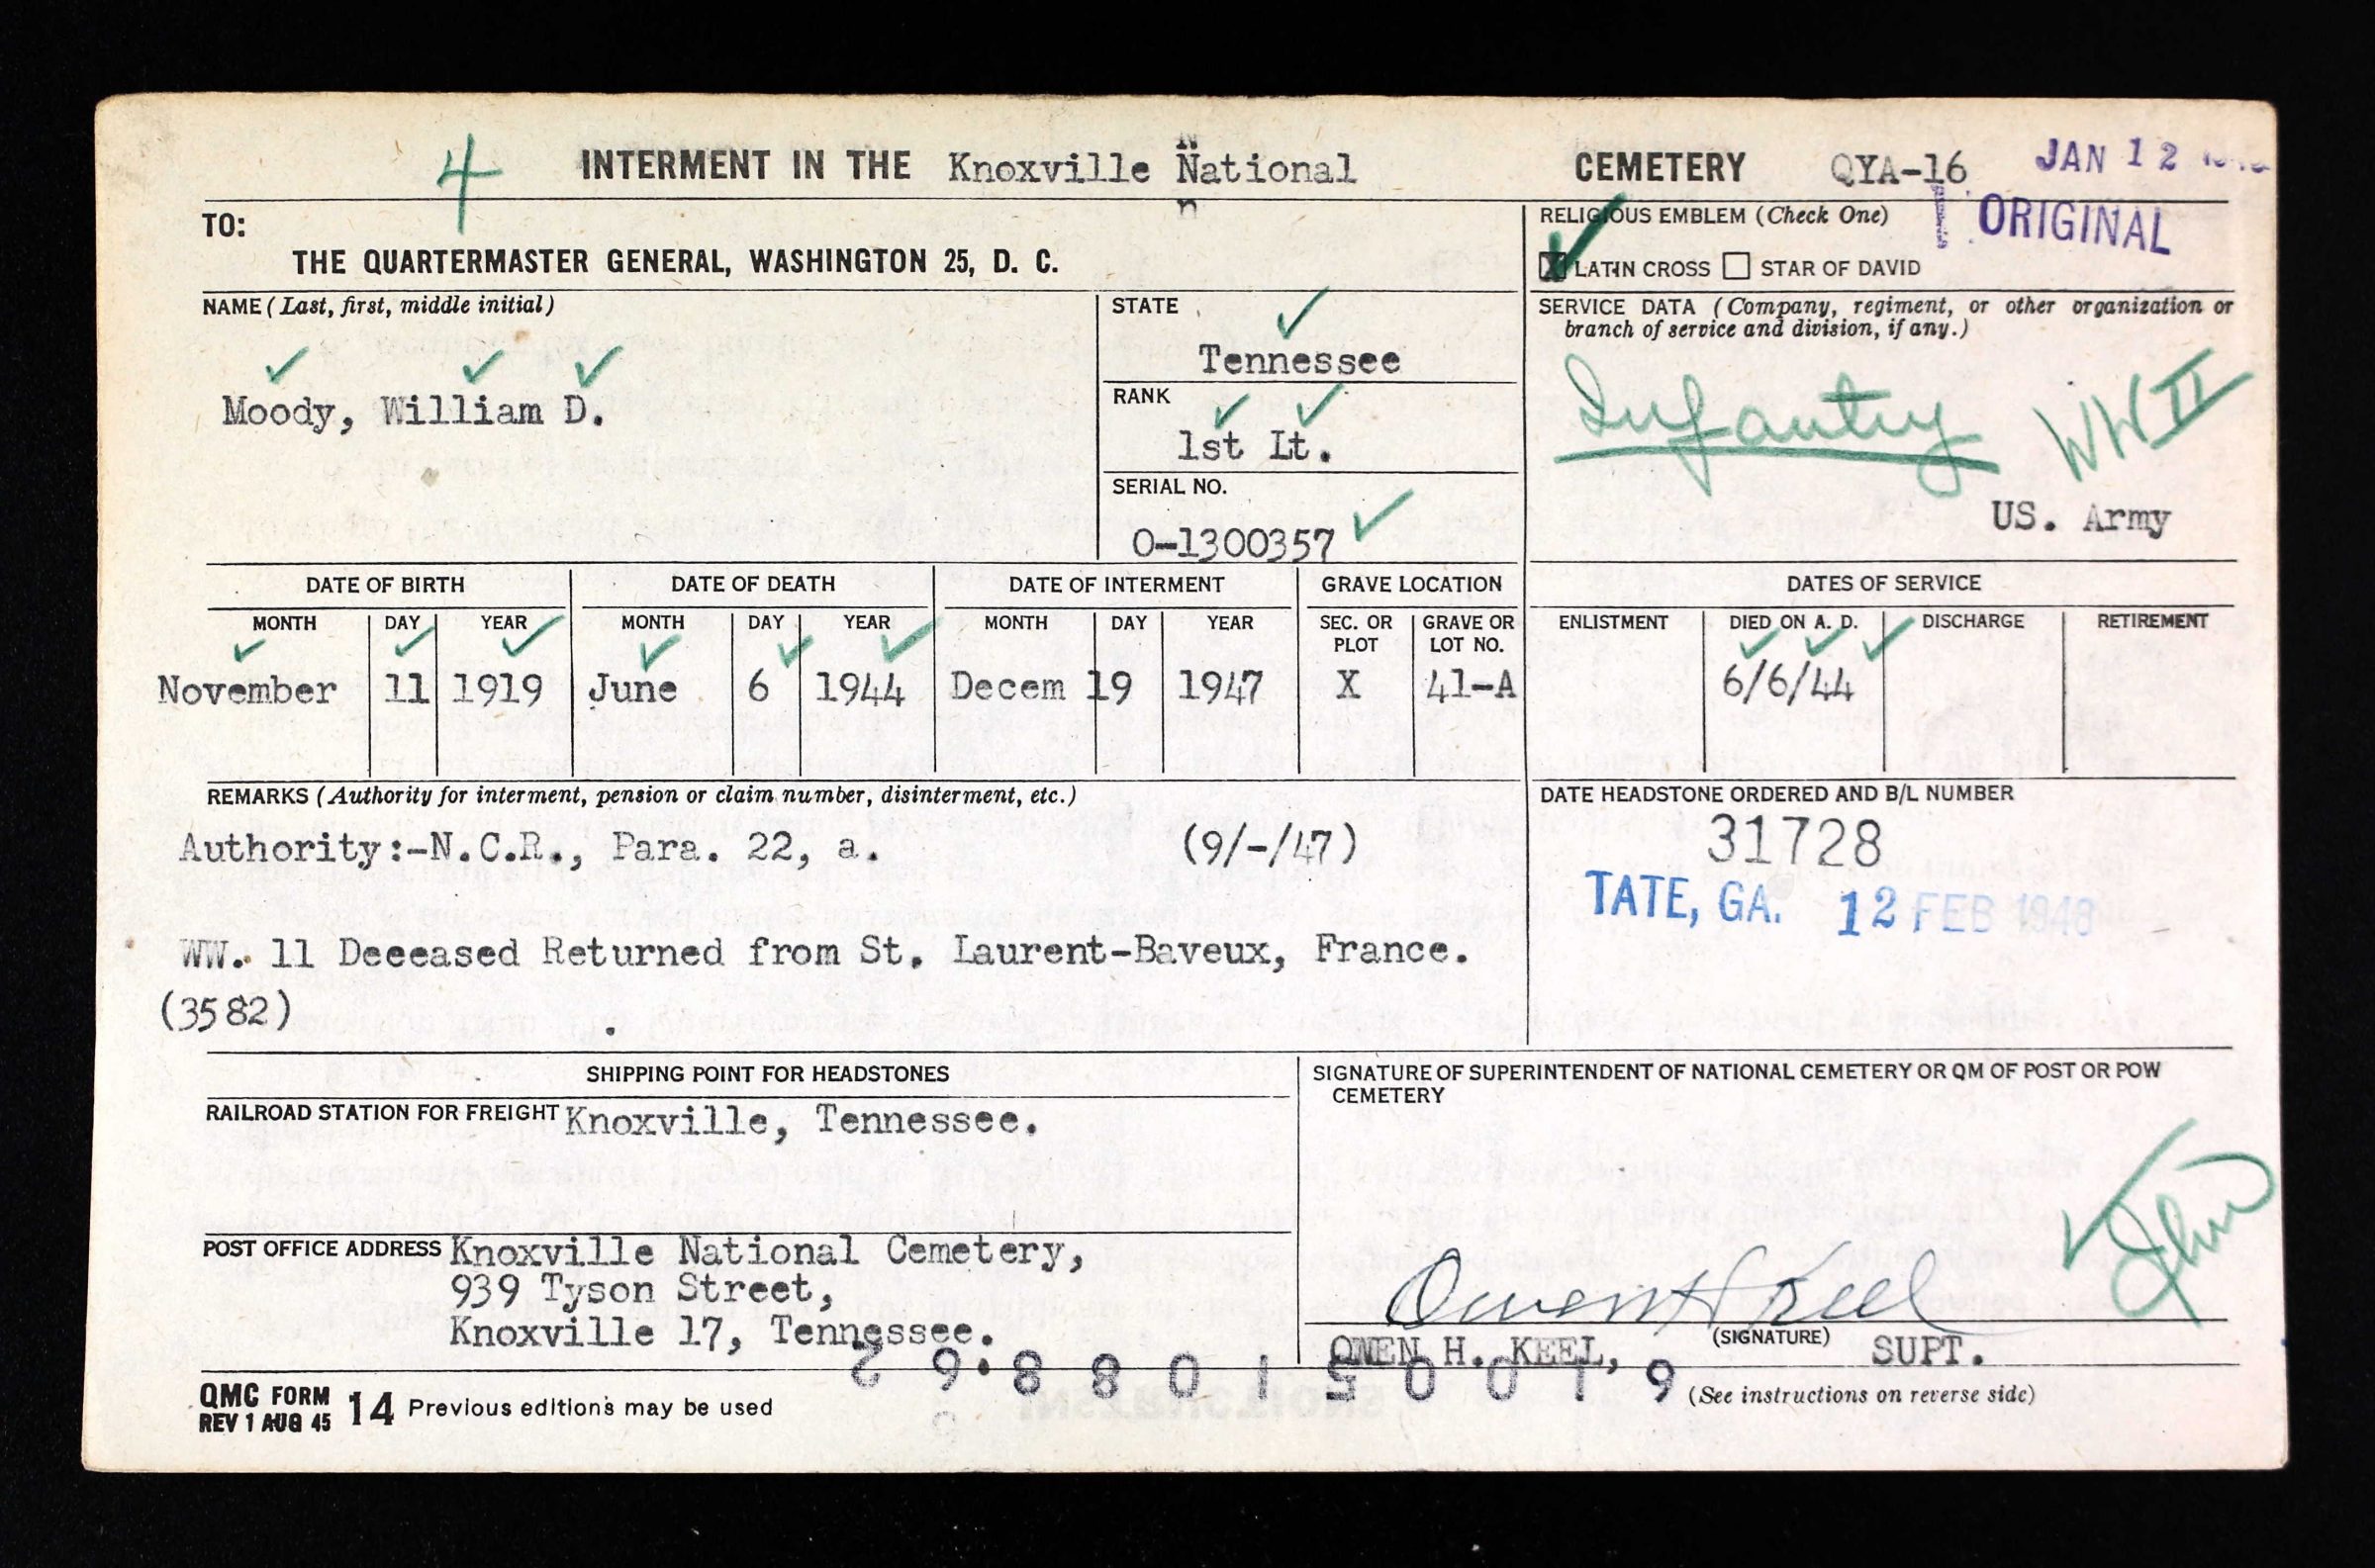 4 INTERMENT IN THE Knoxville National CEMETERY QYA-16 JAN 12
ORIGINAL
TO:
THE QUARTERMASTER GENERAL, WASHINGTON 25, D. C.
RELIGIOUS EMBLEM (Check One)
X LATIN CROSS STAR OF DAVID
NAME (Last, first, middle initial)
Moody, William D.
STATE
Tennessee
RANK
1st Lt.
SERIAL NO.
O-1300357
SERVICE DATA (Company, regiment, or other organization or
branch of service and division, if any.)
Infantry WW II
US. Army
DATE OF BIRTH DATE OF DEATH DATE OF INTERMENT GRAVE LOCATION DATES OF SERVICE
MONTH DAY YEAR MONTH DAY YEAR MONTH DAY YEAR SEC. OR PLOT GRAVE OR LOT NO. ENLISTMENT DIED ON A. D. DISCHARGE RETIREMENT
November 11 1919 June 6 1944 Decem 19 1947 X 41-A 6/6/44
REMARKS (Authority for interment, pension or claim number, disinterment, etc.)
Authority:-N.C.R., Para. 22, a. (9/-/47)
WW. 11 Deeeased Returned from St. Laurent-Baveux, France.
(3582)
DATE HEADSTONE ORDERED AND B/L NUMBER
31728
TATE, GA. 12 FEB 1948
SHIPPING POINT FOR HEADSTONES
RAILROAD STATION FOR FREIGHT Knoxville, Tennessee.
POST OFFICE ADDRESS Knoxville National Cemetery,
939 Tyson Street,
Knoxville 17, Tennessee.
SIGNATURE OF SUPERINTENDENT OF NATIONAL CEMETERY OR QM OF POST OR POW
CEMETERY
Owen H Keel
(SIGNATURE)
OWEN H. KEEL, SUPT.
(See instructions on reverse side)
QMC FORM 14 Previous editions may be used
REV 1 AUG 45